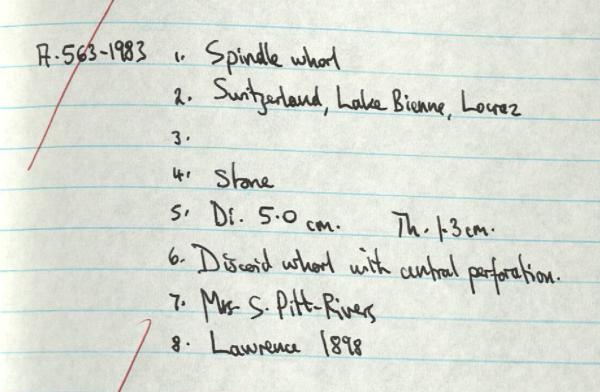 A.563-1983 1. Spindle whorl
2. Switzerland, Lake Bienne, Locraz
3.
4. Stone
5. Di. 5.0 cm. Th. 1.3 cm.
6. Discoid whorl with central perforation.
7. Mrs S. Pitt-Rivers
8. Lawrence 1898